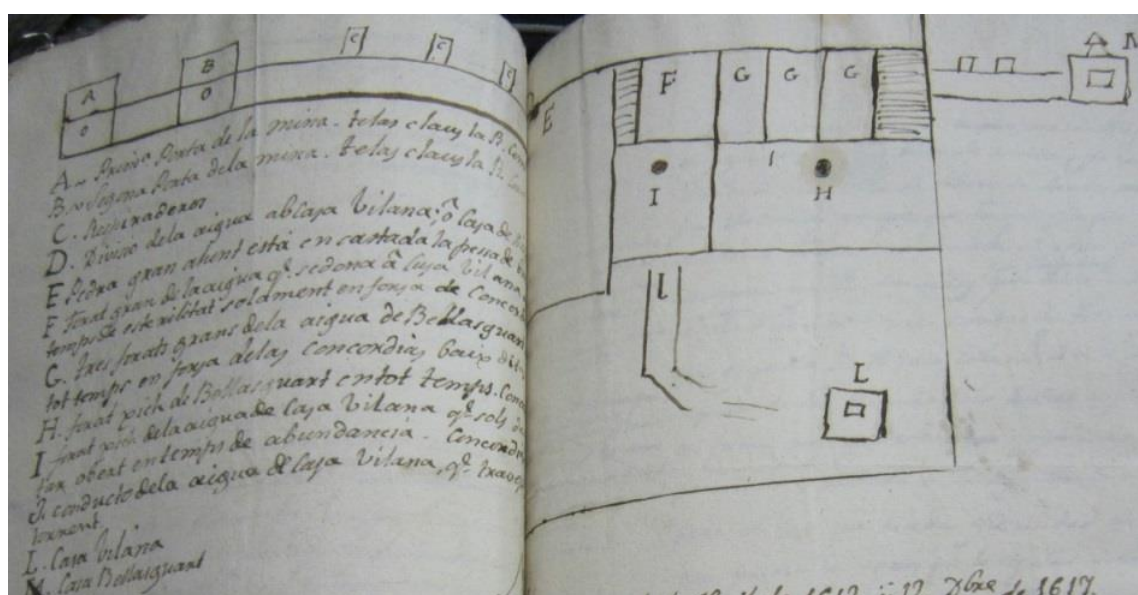 A
B
O
O
C
C
C
A.. Prim.ª Porta de la mina. te las claus la R. Com
B.. Segona Porta de la mina. te las claus la R. Com
C. Respiraderos
D. Divisio de la aigua ab Casa Vilana; ô Casa de
E Pedra gran ahent está encastada la pessa de
F forat gran de la aigua q.e se dona â Casa Vilana
temps de esterilitat solament en forsa de Concor
G. tres forats grans de la aigua de Bellasguart
tot temps en forsa de las concordias baix
H. forat xich de Bellasguart en tot temps. Conc
I forat xich de la aigua de Casa Vilana q.e sols
obert en temps de abundancia. Concord
conducto de la aigua de Casa Vilana, q.e
torrent.
L. Casa Vilana
M. Casa Bellasguart
E
F
G
G
G
I
H
l
L
M
1617.